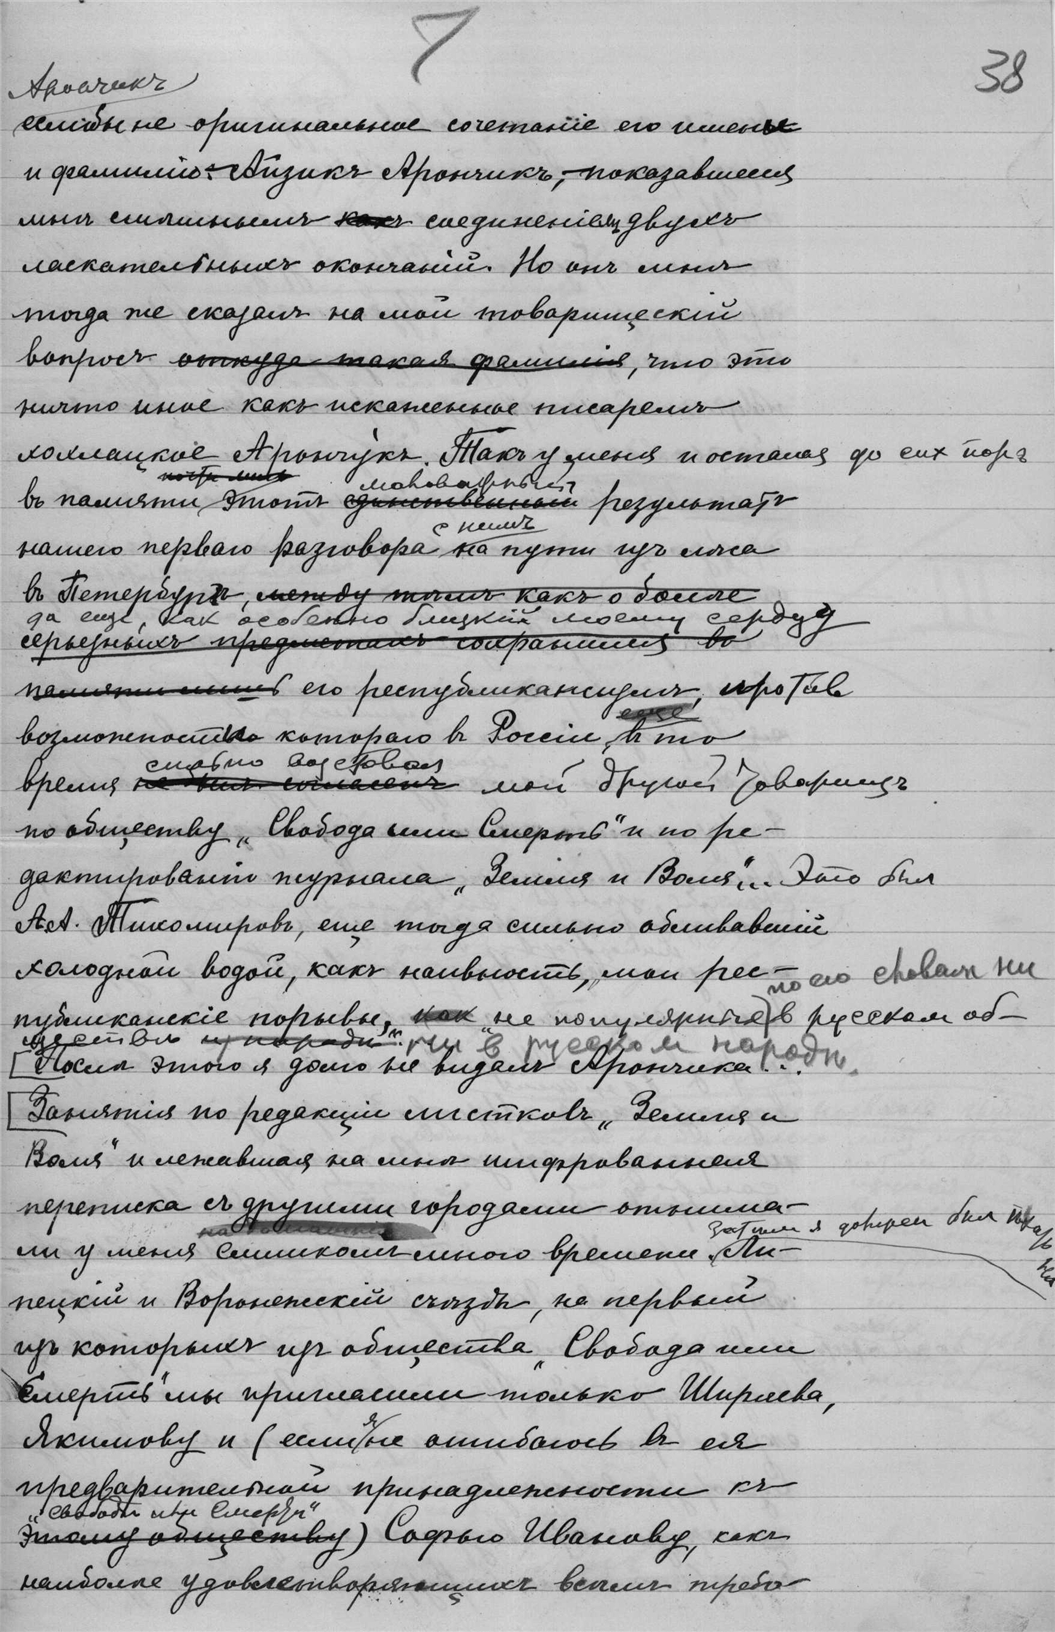 7
38
Арончикъ
еслибы не оригинальное сочетаніе его имени
и фамиліи: Айзикъ Арончикъ, показавшееся
мнѣ смѣшнымъ какъ соединеніемъ двухъ
ласкательныхъ окончаній. Но онъ мнѣ
тогда же сказалъ на мой товарищескій
вопросъ откуда такая фамилія, что это
ничто иное какъ искаженное писаремъ
хохлацкое Арончукъ. Такъ у меня и остался до сих поръ
почти лишь маловажный
въ памяти этотъ единственный результатъ
с нимъ
нашего перваго разговора на пути изъ лѣса
въ Петербургъ, между тѣмъ какъ о болѣе
да еще, как особенно близкій моему сердцу
серьезныхъ предметахъ сохранился во
памяти лишь его республиканизмъ, против
еще
возможности котораго в Россіи в то
сильно возставал
время не былъ согласенъ мой другой товарищъ
по обществу „Свобода или Смерть“ и по ре-
дактированію журнала „Земля и Воля“... Это был
Л.А. Тихомировъ, еще тогда сильно обливавшій
холодной водой, какъ наивность, мои рес-
по его словам ни
публиканскіе порывы, как не популярные в русском об-
ществѣ и народѣ“ ни в русском народѣ.
Послѣ этого я долго не видалъ Арончика...
Занятія по редакціи листковъ „Земля и
Воля“ и лежавшая на мнѣ шифрованная
переписка съ другими городами отнима-
затѣм я должен был ѣхать на
ли у меня слишкомъ много времени. Ли-
пецкій и Воронежскій съѣзды, на первый
изъ которыхъ изъ общества „Свобода или
Смерть“ мы пригласили только Ширяева,
я
Якимову и (если не ошибаюсь в ея
предварительной принадлежности къ
„Свободѣ или Смерти“
этому обществу) Софью Иванову, какъ
наиболѣе удовлетворяющихъ всѣмъ требо-